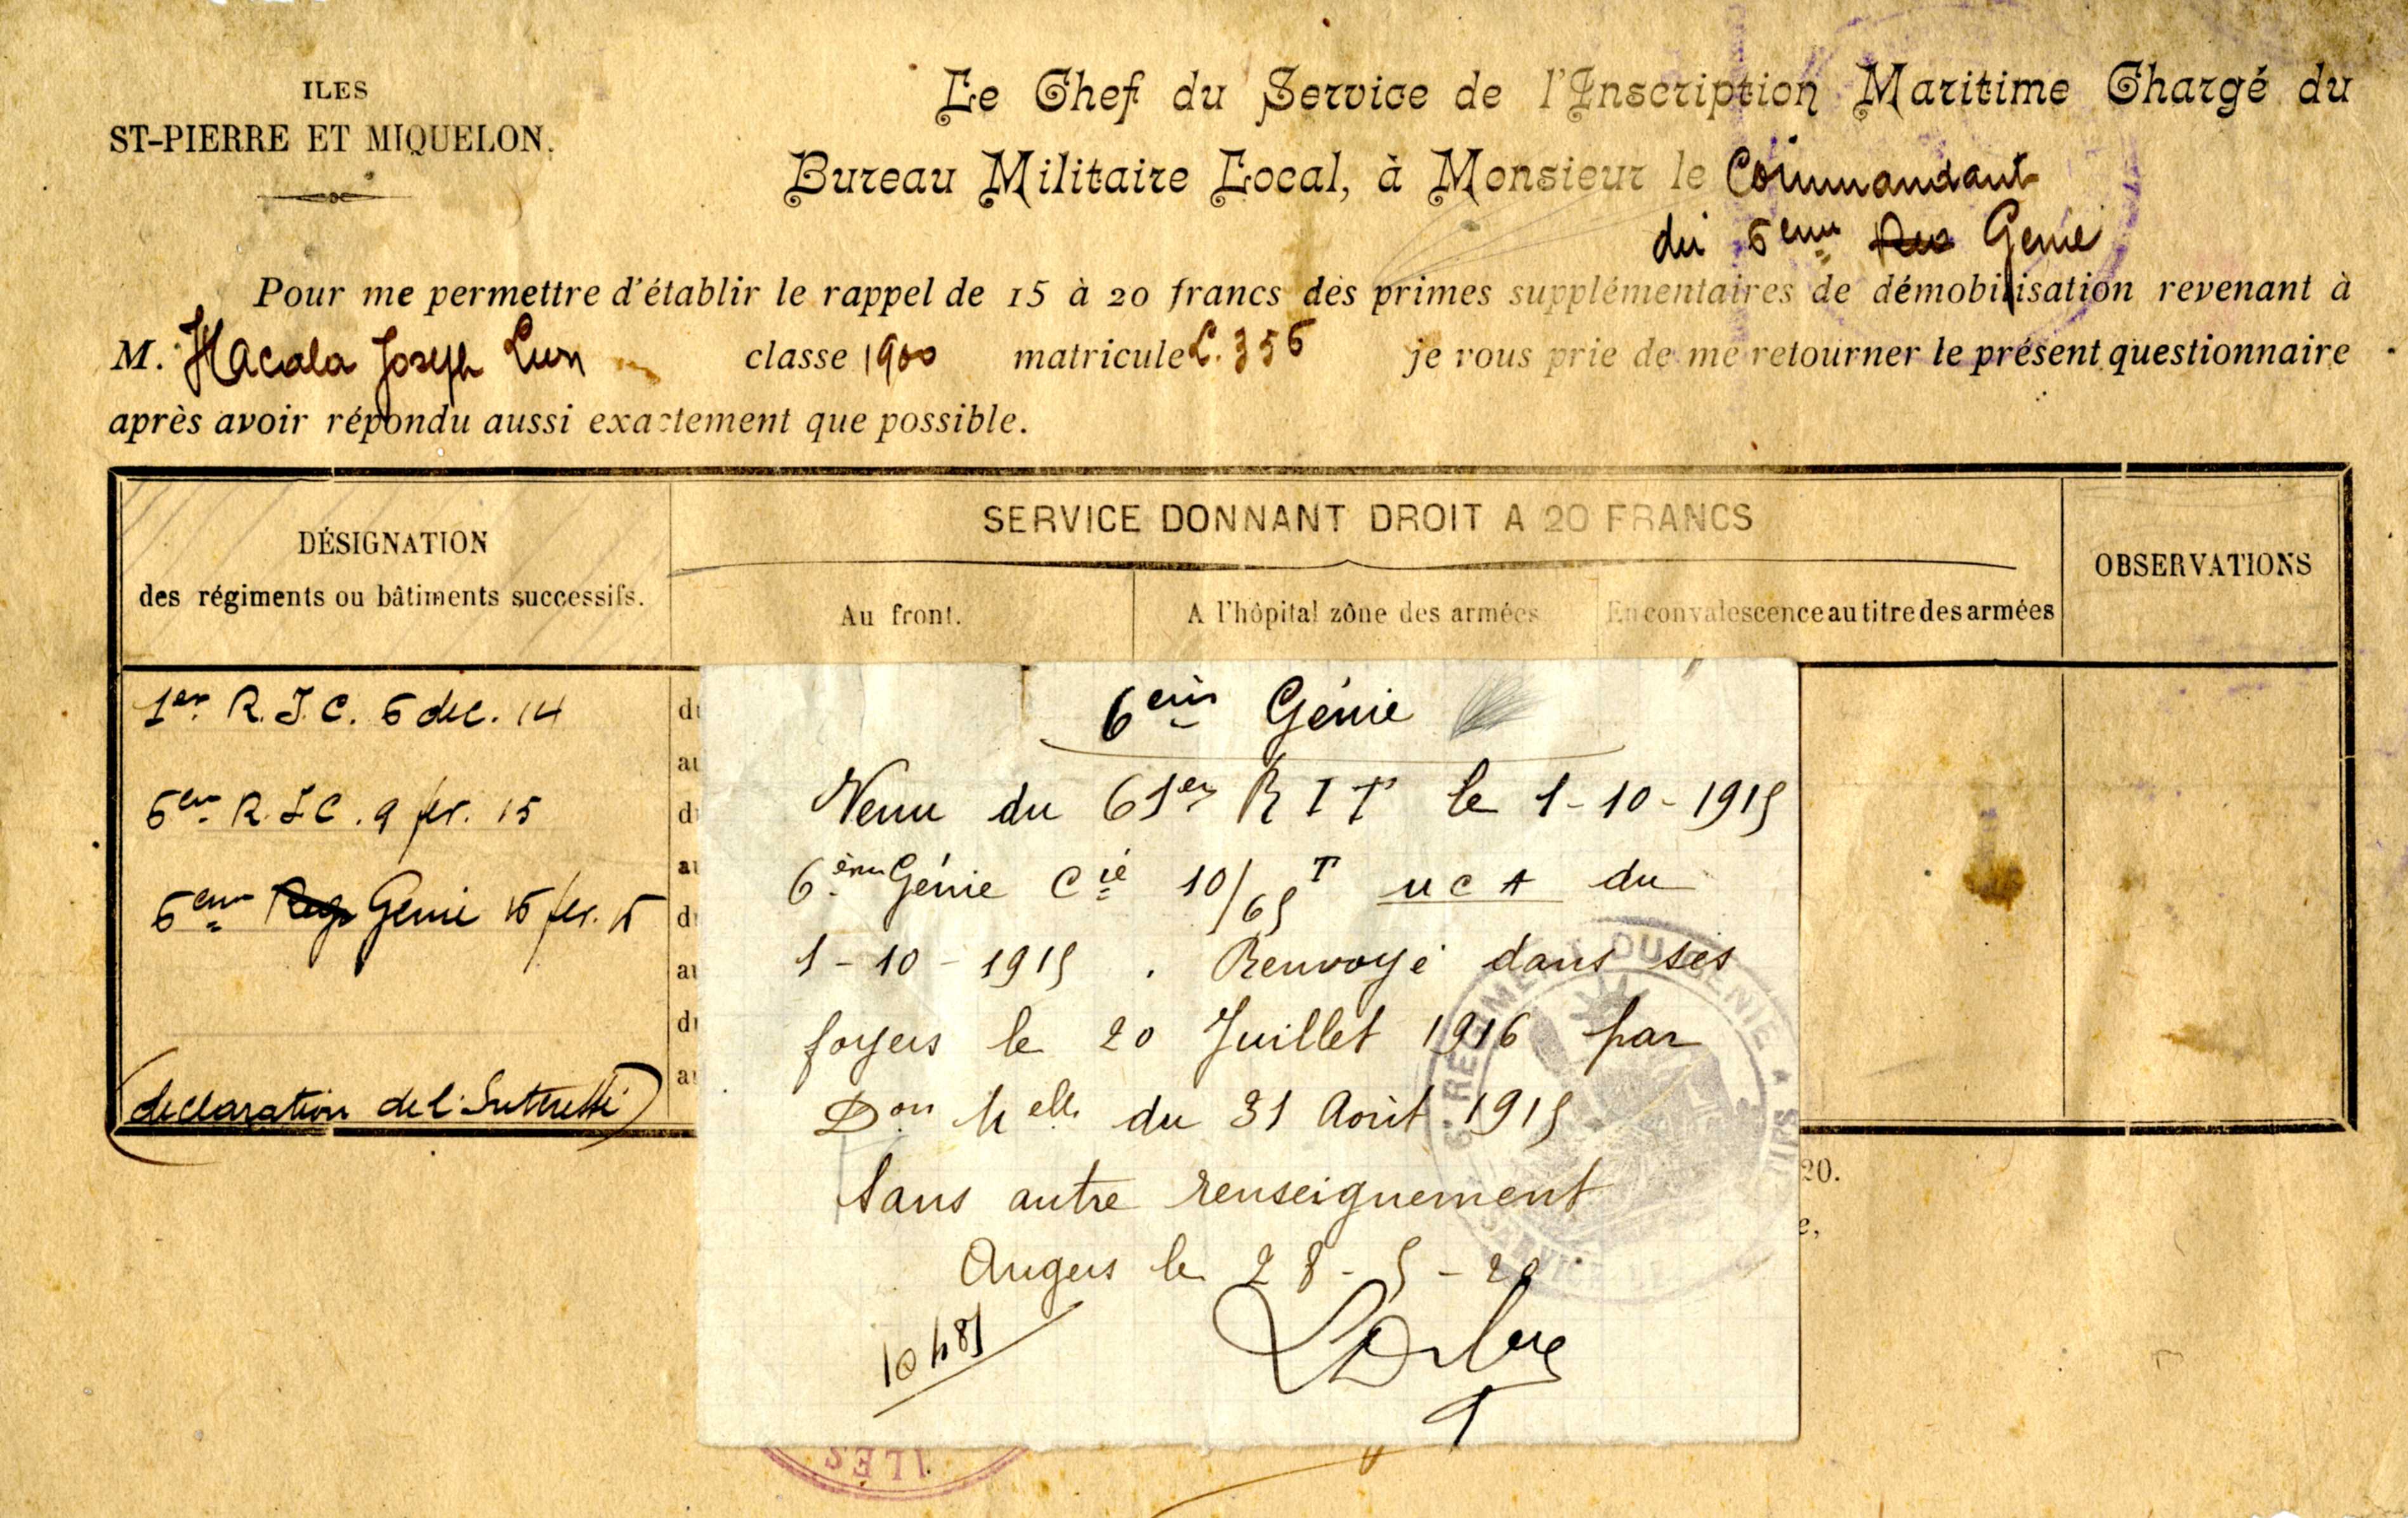 ILES
ST-PIERRE ET MIQUELON.
Le Chef du Service de l'Inscription Maritime Chargé du
Bureau Militaire Local, à Monsieur le Commandant
du 6eme Génie
Pour me permettre d'établir le rappel de 15 à 20 francs des primes supplémentaires de démobilisation revenant à
M. Hacala Joseph classe 1900 matricule 356 je vous prie de me retourner le présent questionnaire
après avoir répondu aussi exactement que possible.
DÉSIGNATION
des régiments ou bâtiments successifs.
SERVICE DONNANT DROIT A 20 FRANCS
Au front.
A l'hôpital zône des armées
En convalescence au titre des armées
OBSERVATIONS
1er R.I.C. 6 dec. 14
6em R.I.C. 9 fev. 15
6eme Génie 15 fev. 15
(declaration de l'intéressé)
6ème Génie
Venu du 61er R I T le 1-10-1915
6ème Génie Cie 10/65 T du
1-10-1915. Renvoyé dans ses
foyers le 20 Juillet 1916 par
Don Melle du 31 Août 1915
Sans autre renseignement
Angers le 28-5-20
20.
e,
6e REGIMENT DU GENIE
ILES